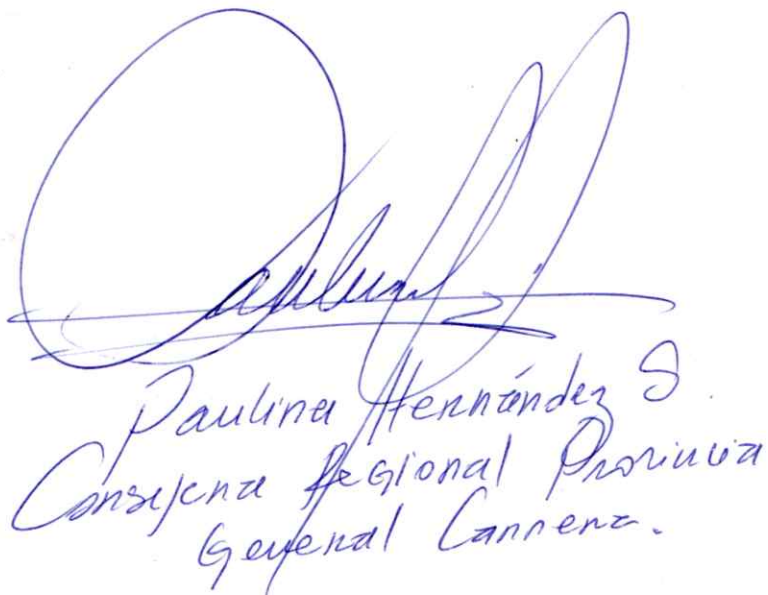 Paulina Hernández S.
Consejera Regional Provincia
General Carrera.